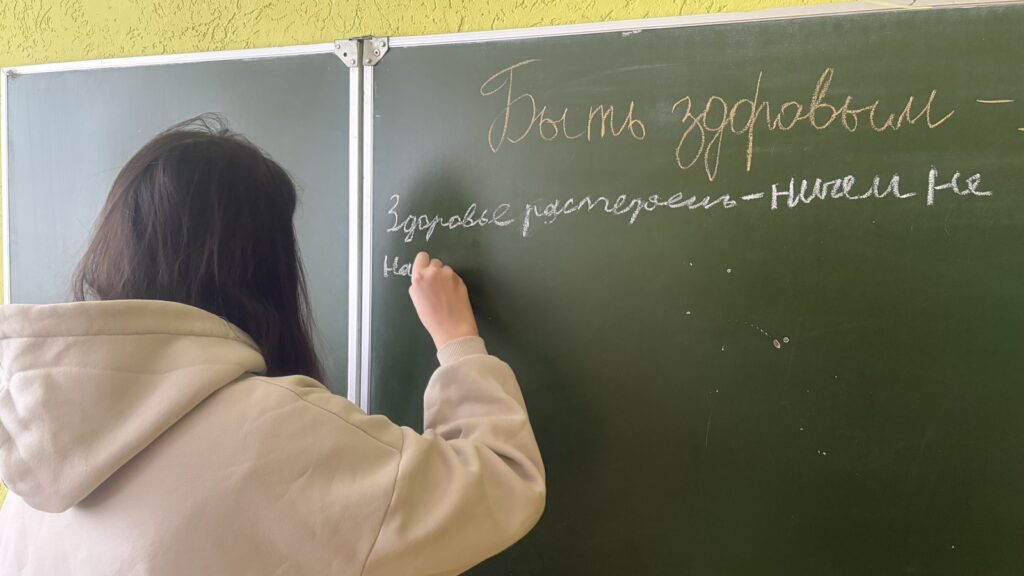 Быть здоровым -
Здоровье растеряешь - ничем не
на